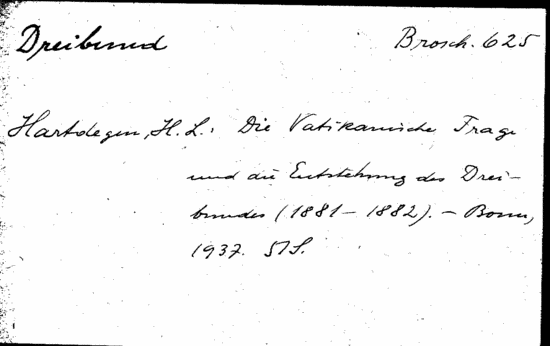 Dreibund
Brosch. 625
Hartdegen, H. L.: Die Vatikanische Frage
und die Entstehung des Drei-
bundes (1881 - 1882). - Bonn,
1937. 51 S.